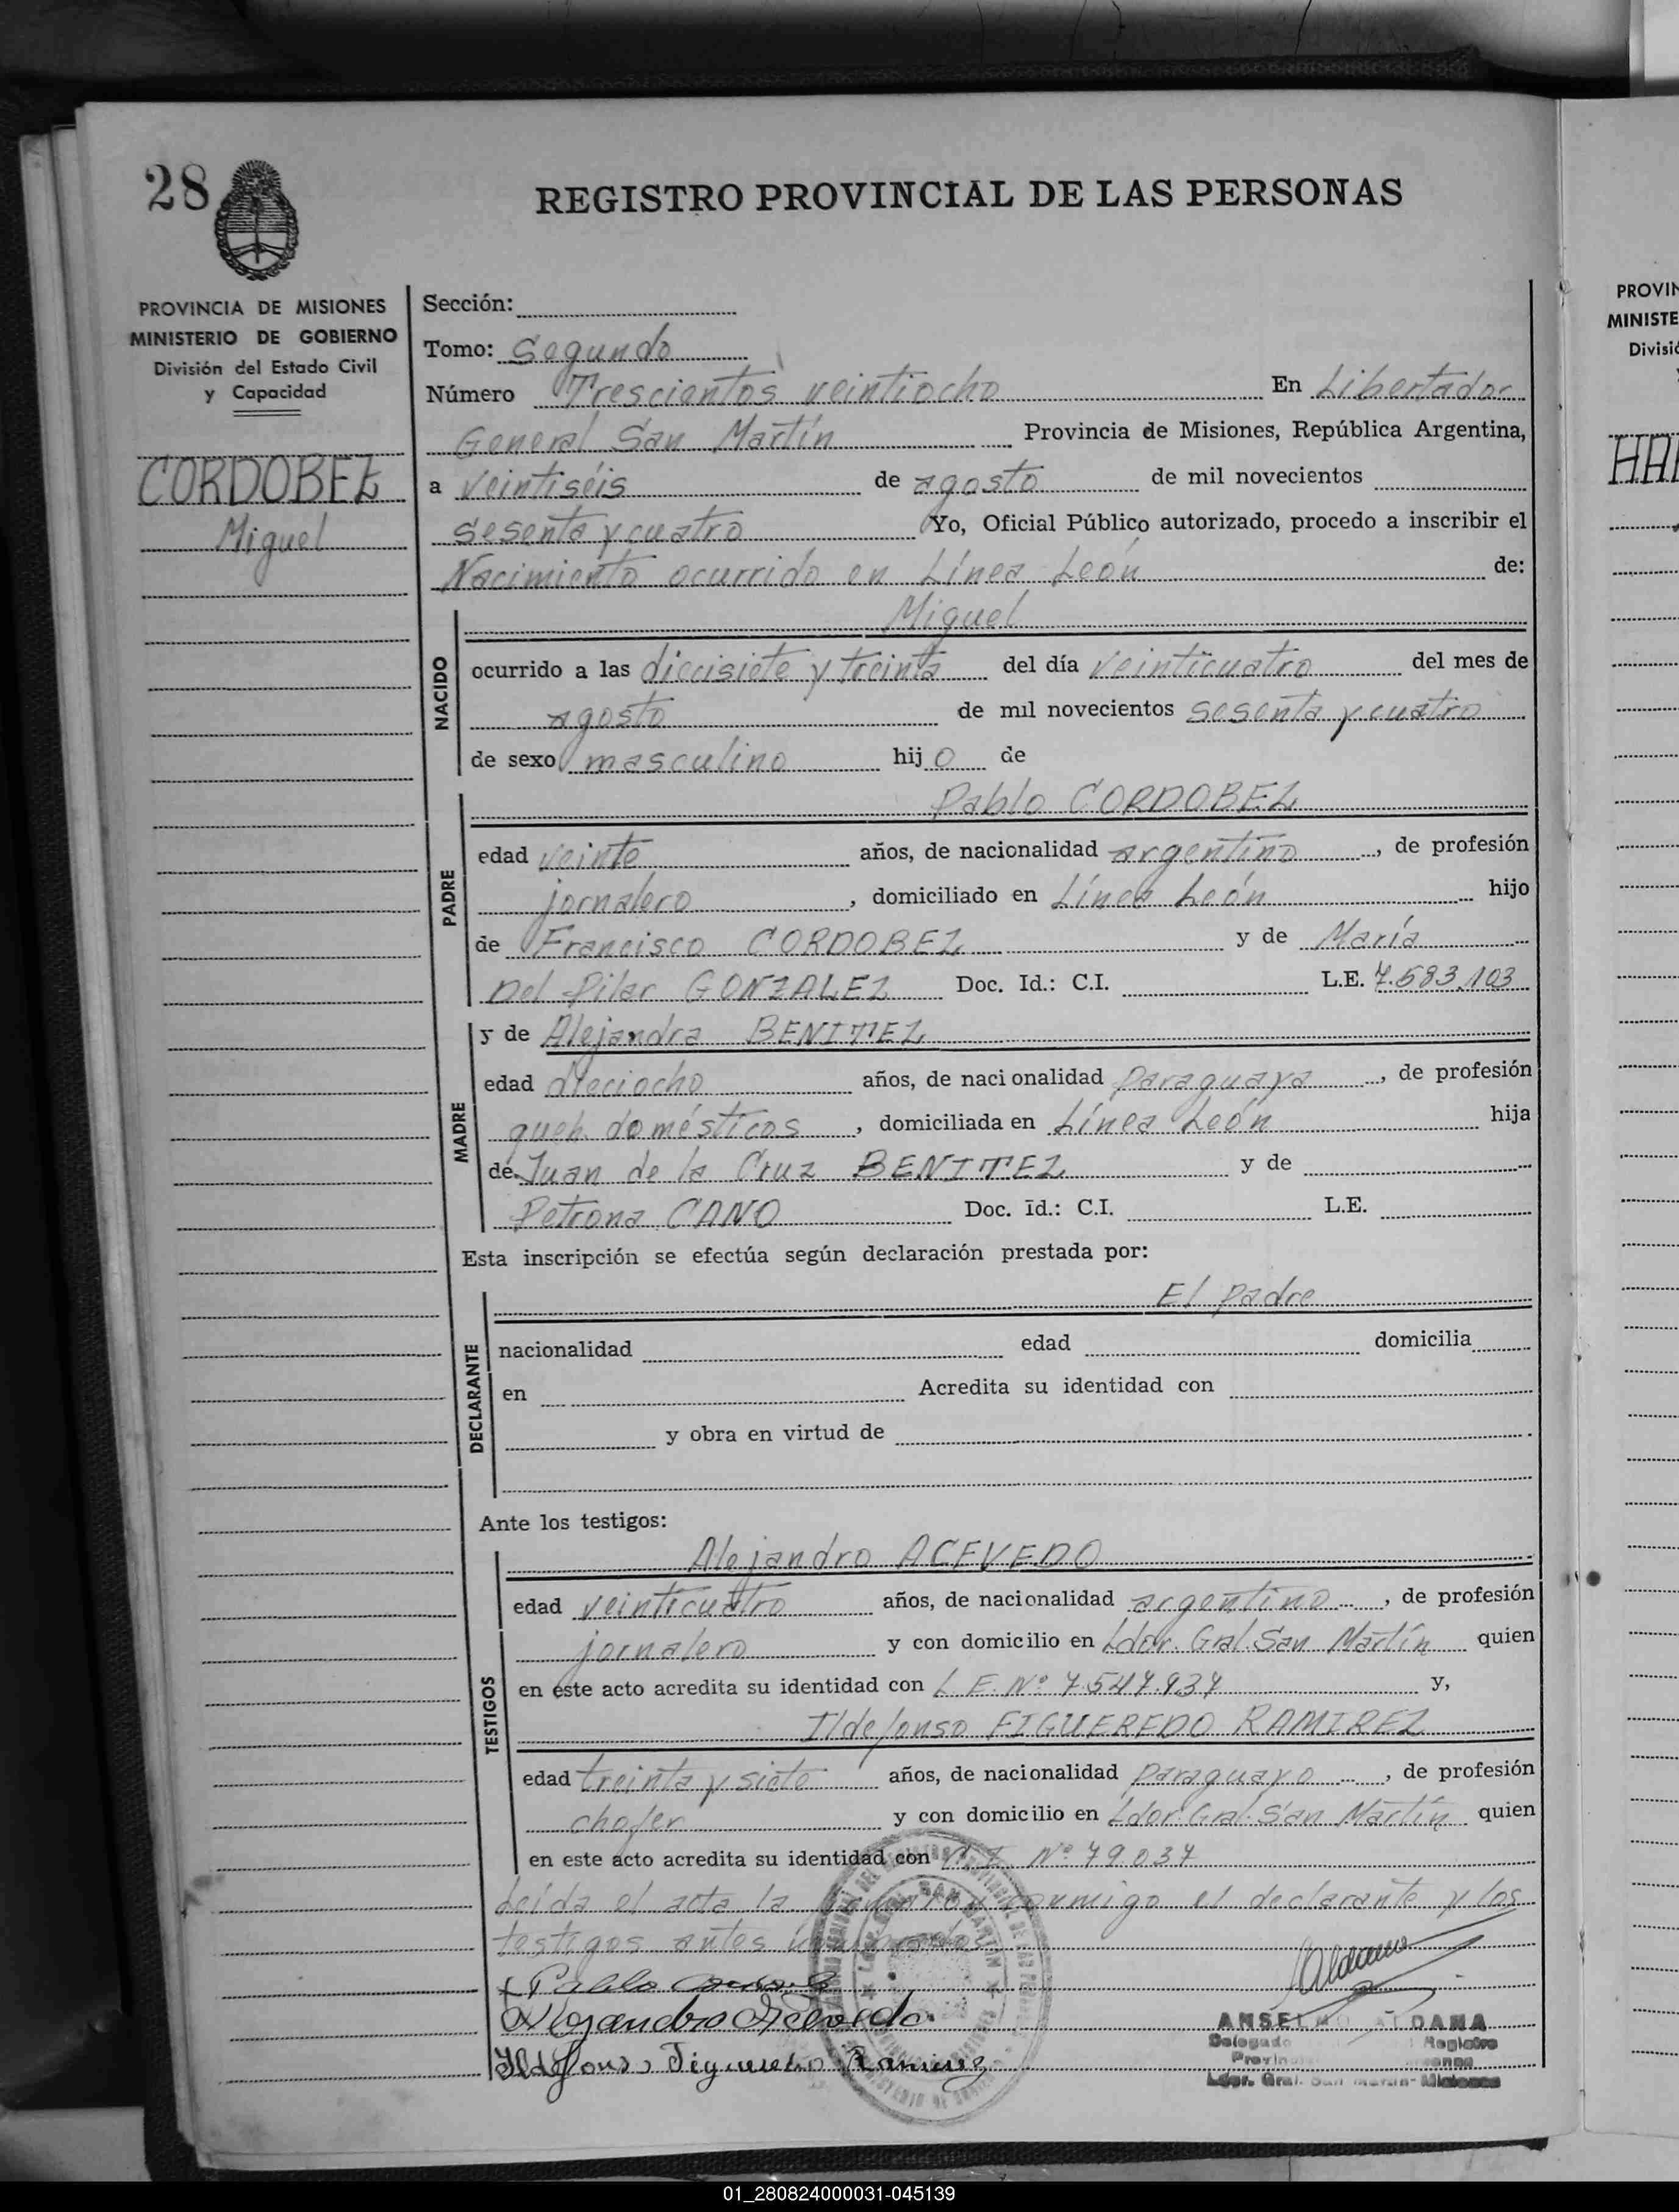 28
REGISTRO PROVINCIAL DE LAS PERSONAS
PROVINCIA DE MISIONES
MINISTERIO DE GOBIERNO
División del Estado Civil
y Capacidad
CORDOBEZ
Miguel
Sección:
Tomo: Segundo
Número Trescientos veintiocho En Libertador
General San Martín Provincia de Misiones, República Argentina,
a Veintiséis de agosto de mil novecientos
sesenta y cuatro Yo, Oficial Público autorizado, procedo a inscribir el
Nacimiento ocurrido en Línea León de:
Miguel
NACIDO
ocurrido a las diecisiete y treinta del día veinticuatro del mes de
agosto de mil novecientos sesenta y cuatro
de sexo masculino hijo de
Pablo CORDOBEZ
PADRE
edad veinte años, de nacionalidad argentino, de profesión
jornalero, domiciliado en Línea León hijo
de Francisco CORDOBEZ y de María
Del Pilar GONZALEZ Doc. Id.: C.I. L.E. 7.583.103
y de Alejandra BENITEZ
MADRE
edad dieciocho años, de nacionalidad paraguaya, de profesión
queh. domésticos, domiciliada en Línea León hija
de Juan de la Cruz BENITEZ y de
Petrona CANO Doc. Id.: C.I. L.E.
Esta inscripción se efectúa según declaración prestada por:
El padre
DECLARANTE
nacionalidad edad domicilia
en Acredita su identidad con
y obra en virtud de
Ante los testigos:
Alejandro ACEVEDO
TESTIGOS
edad veinticuatro años, de nacionalidad argentino, de profesión
jornalero y con domicilio en Ldor. Gral. San Martín quien
en este acto acredita su identidad con L.E. Nº 7.547.937 y,
Ildefonso FIGUEREDO RAMIREZ
edad treinta y siete años, de nacionalidad paraguayo, de profesión
chofer y con domicilio en Ldor. Gral. San Martín quien
en este acto acredita su identidad con Nº 79037
Leída el acta la conmigo el declarante y los
testigos antes
Pablo
Alejandro Acevedo
Ildefonso Figueredo Ramirez
ANSELMO ALDANA
Delegado Registro
Ldor. Gral. San Martín - Misiones
PROVIN
MINISTE
Divisió
01_280824000031-045139